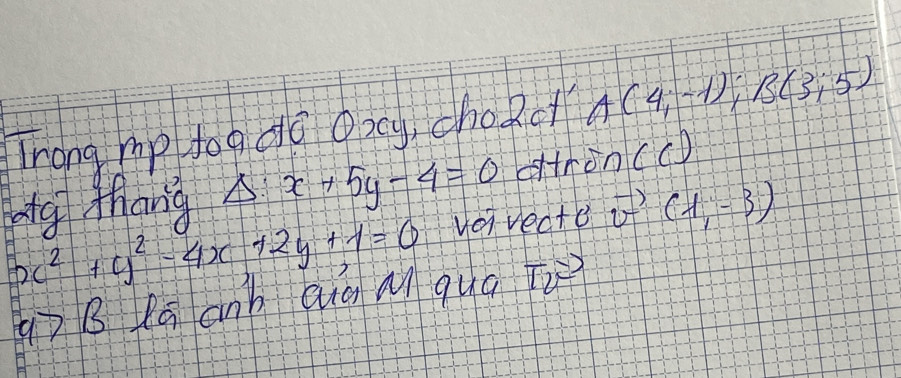 Trong mp toạ độ Oxy, cho 2 đ' A(4,-1); B(3;5)
đtg thẳng Δ: x + 5y - 4 = 0 đtròn (C)
x² + y² - 4x + 2y + 1 = 0 với vectơ v⃗ (1,-3)
a> B là ảnh của M qua Tv⃗